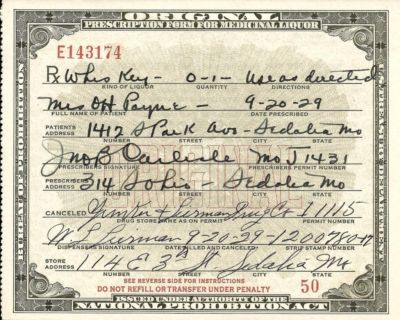 ORIGINAL
PRESCRIPTION FORM FOR MEDICINAL LIQUOR
E143174
Rx Whiskey - 0-1- Use as directed
KIND OF LIQUOR QUANTITY DIRECTIONS
Mrs OH Payne - 9-20-29
FULL NAME OF PATIENT DATE PRESCRIBED
PATIENTS ADDRESS 1412 S Park Ave - Sedalia Mo
NUMBER STREET CITY STATE
Jno B Carlisle Mo J 1431
PRESCRIBERS SIGNATURE PRESCRIBERS PERMIT NO.
PRESCRIBERS ADDRESS 314 So Ohio Sedalia Mo
NUMBER STREET CITY STATE
CANCELED
DRUG STORE NAME PERMIT NUMBER
9-20-29-
DISPENSERS SIGNATURE DATE FILLED AND CANCELED STRIP STAMP NUMBER
STORE ADDRESS 114 E 3rd St Sedalia Mo
NUMBER STREET CITY STATE
SEE REVERSE SIDE FOR INSTRUCTIONS
DO NOT REFILL OR TRANSFER UNDER PENALTY 50
ISSUED UNDER AUTHORITY OF THE
NATIONAL PROHIBITION ACT